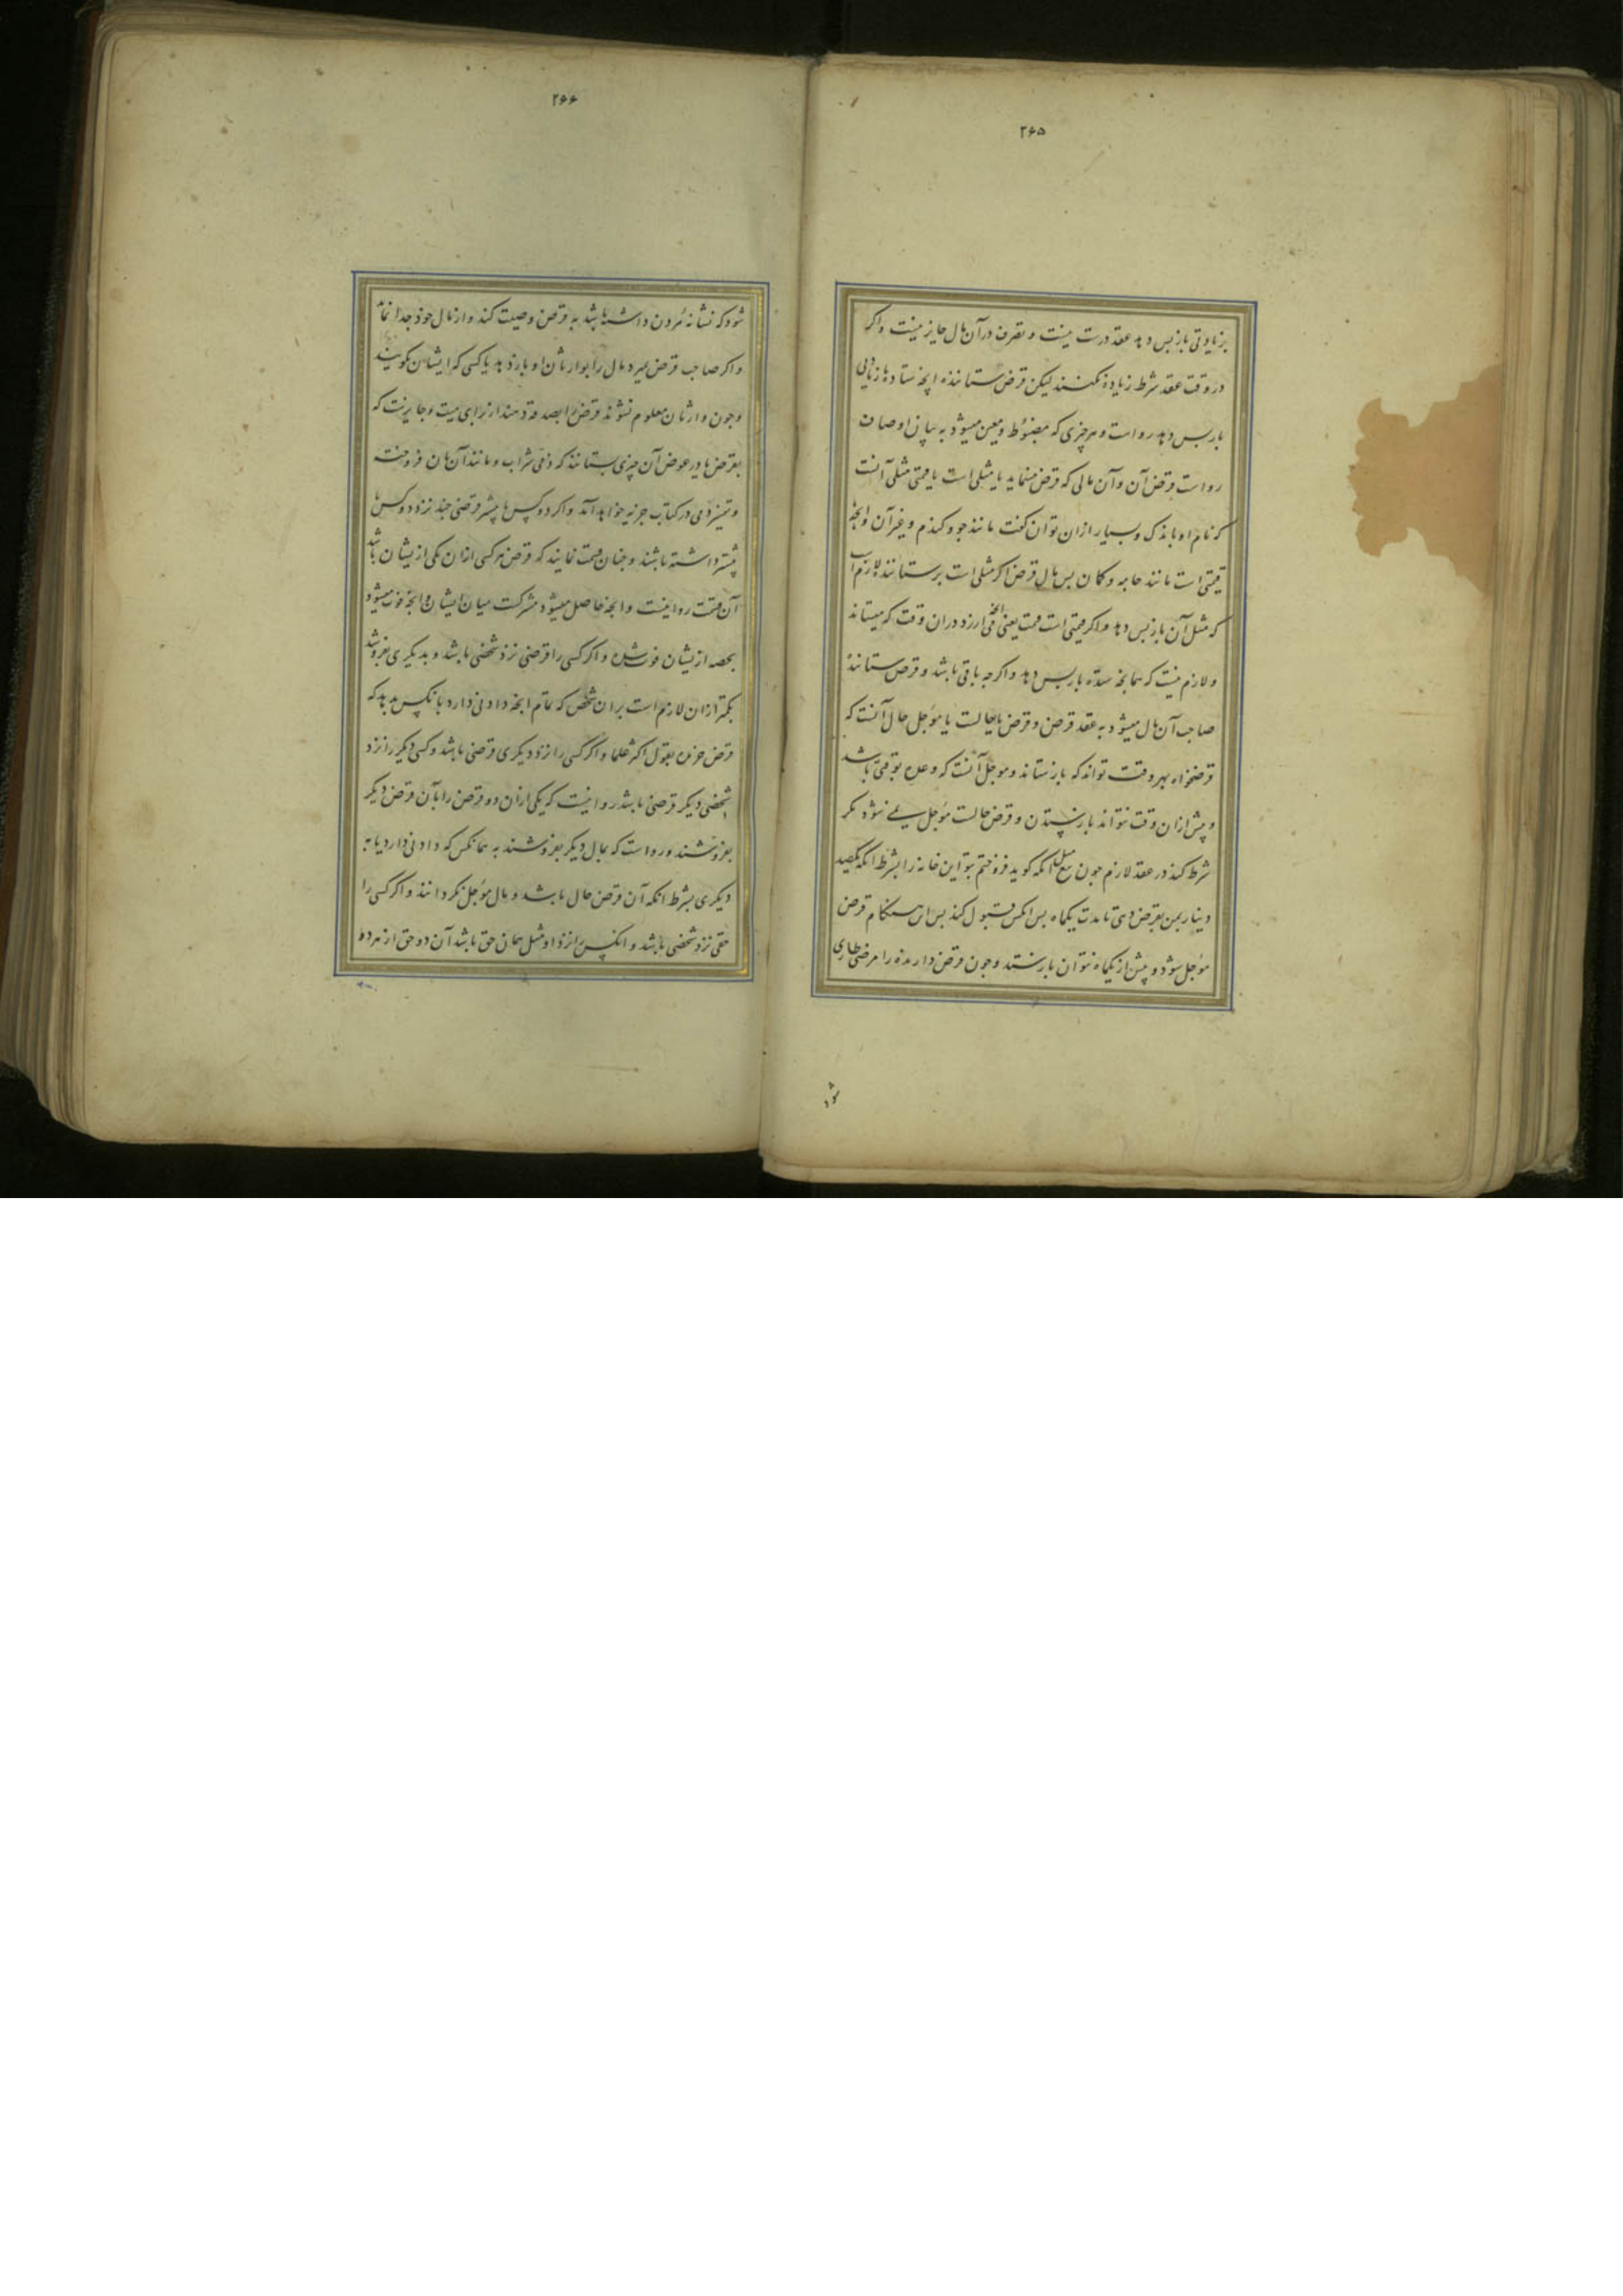 ۲۶۵
بزیادتی بازپس دهد عقد درست نیست و تصرف در آن مال جایز نیست و اکر
در وقت عقد شرط زیاده نکنند لیکن قرض ستاننده انچه ستاده با زیادتی
بازپس دهد رواست و هر چیزی که مضبوط و معین میشود به بیان اوصاف
رواست قرض آن و آن مالی که قرض مینماید یا مثلی است یا قیمتی مثلی آنست
که نام او باندک و بسیار ازان توان کفت مانند جو و کندم و غیر آن و انچه
قیمتی است مانند جامه و کمان بس مال قرض اکر مثلی است بر ستاننده لازم است
که مثل آن بازپس دهد و اکر قیمتی است قیمت یعنی انچه می ارزد دران وقت که میستاند
و لازم نیست که همانچه ستده بازپس دهد و اکرچه باقی باشد و قرض ستاننده
صاحب آن مال میشود به عقد قرض و قرض یا حالست یا مؤجل حال آنست که
قرضخواه بهر وقت تواند که بازستاند و مؤجل آنست که وعده بوقتی باشد
و پیش ازان وقت نتواند بازستدن و قرض حالست مؤجل نمی شود مکر
شرط کند در عقد لازم جون بیع مثلا انکه کوید فروختم بتو این خانه را بشرط انکه یکصد
دینار بمن بقرض دهی تا مدت یکماه بس انکس قبول کند بس این هنکام قرض
مؤجل شود و پیش از یکماه نتوان بازستد و جون قرض دارنده را مرضی طاری
شود
۲۶۶
شود که نشانه مردن داشته باشد به قرض وصیت کند و از مال خود جدا نماید
و اکر صاحب قرض بمیرد مال را بوارثان او باز دهد یا کسی که ایشان کویند
و جون وارثان معلوم نشوند قرض را بصدقه دهند از برای میت و جایز نیست که
بقرض یا در عوض آن چیزی بستانند که ذمی شراب و مانند آن بان فروخته
و تمیز ذمی در کتاب جزیه خواهد آمد و اکر دو کس یا بیشتر قرضی چند نزد دو کس یا
بیشتر داشته باشند و جنان قسمت نمایند که قرض هر کسی ازان یکی از یشان باشد
آن قسمت روا نیست و انچه حاصل میشود مشرکت میان ایشان و انچه فوت میشود
بحصه از یشان فوت شده و اکر کسی را قرضی نزد شخصی باشد و بدیکری بفروشد
بکمتر ازان لازم است بران شخص که تمام انچه دادنی دارد بانکس بدهد که
قرض خریده بقول اکثر علما و اکر کسی را نزد دیکری قرضی باشد و کسی دیکر را نزد
شخصی دیکر قرضی باشد روا نیست که یکی ازان دو قرض را بآن قرض دیکر
بفروشند و رواست که بمال دیکر بفروشند به همانکس که دادنی دارد یا به
دیکری بشرط انکه آن قرض حال باشد و بمال مؤجل نکردانند و اکر کسی را
حقی نزد شخصی باشد و انکس را نزد او مثل همان حق باشد آن دو حق از هر دو